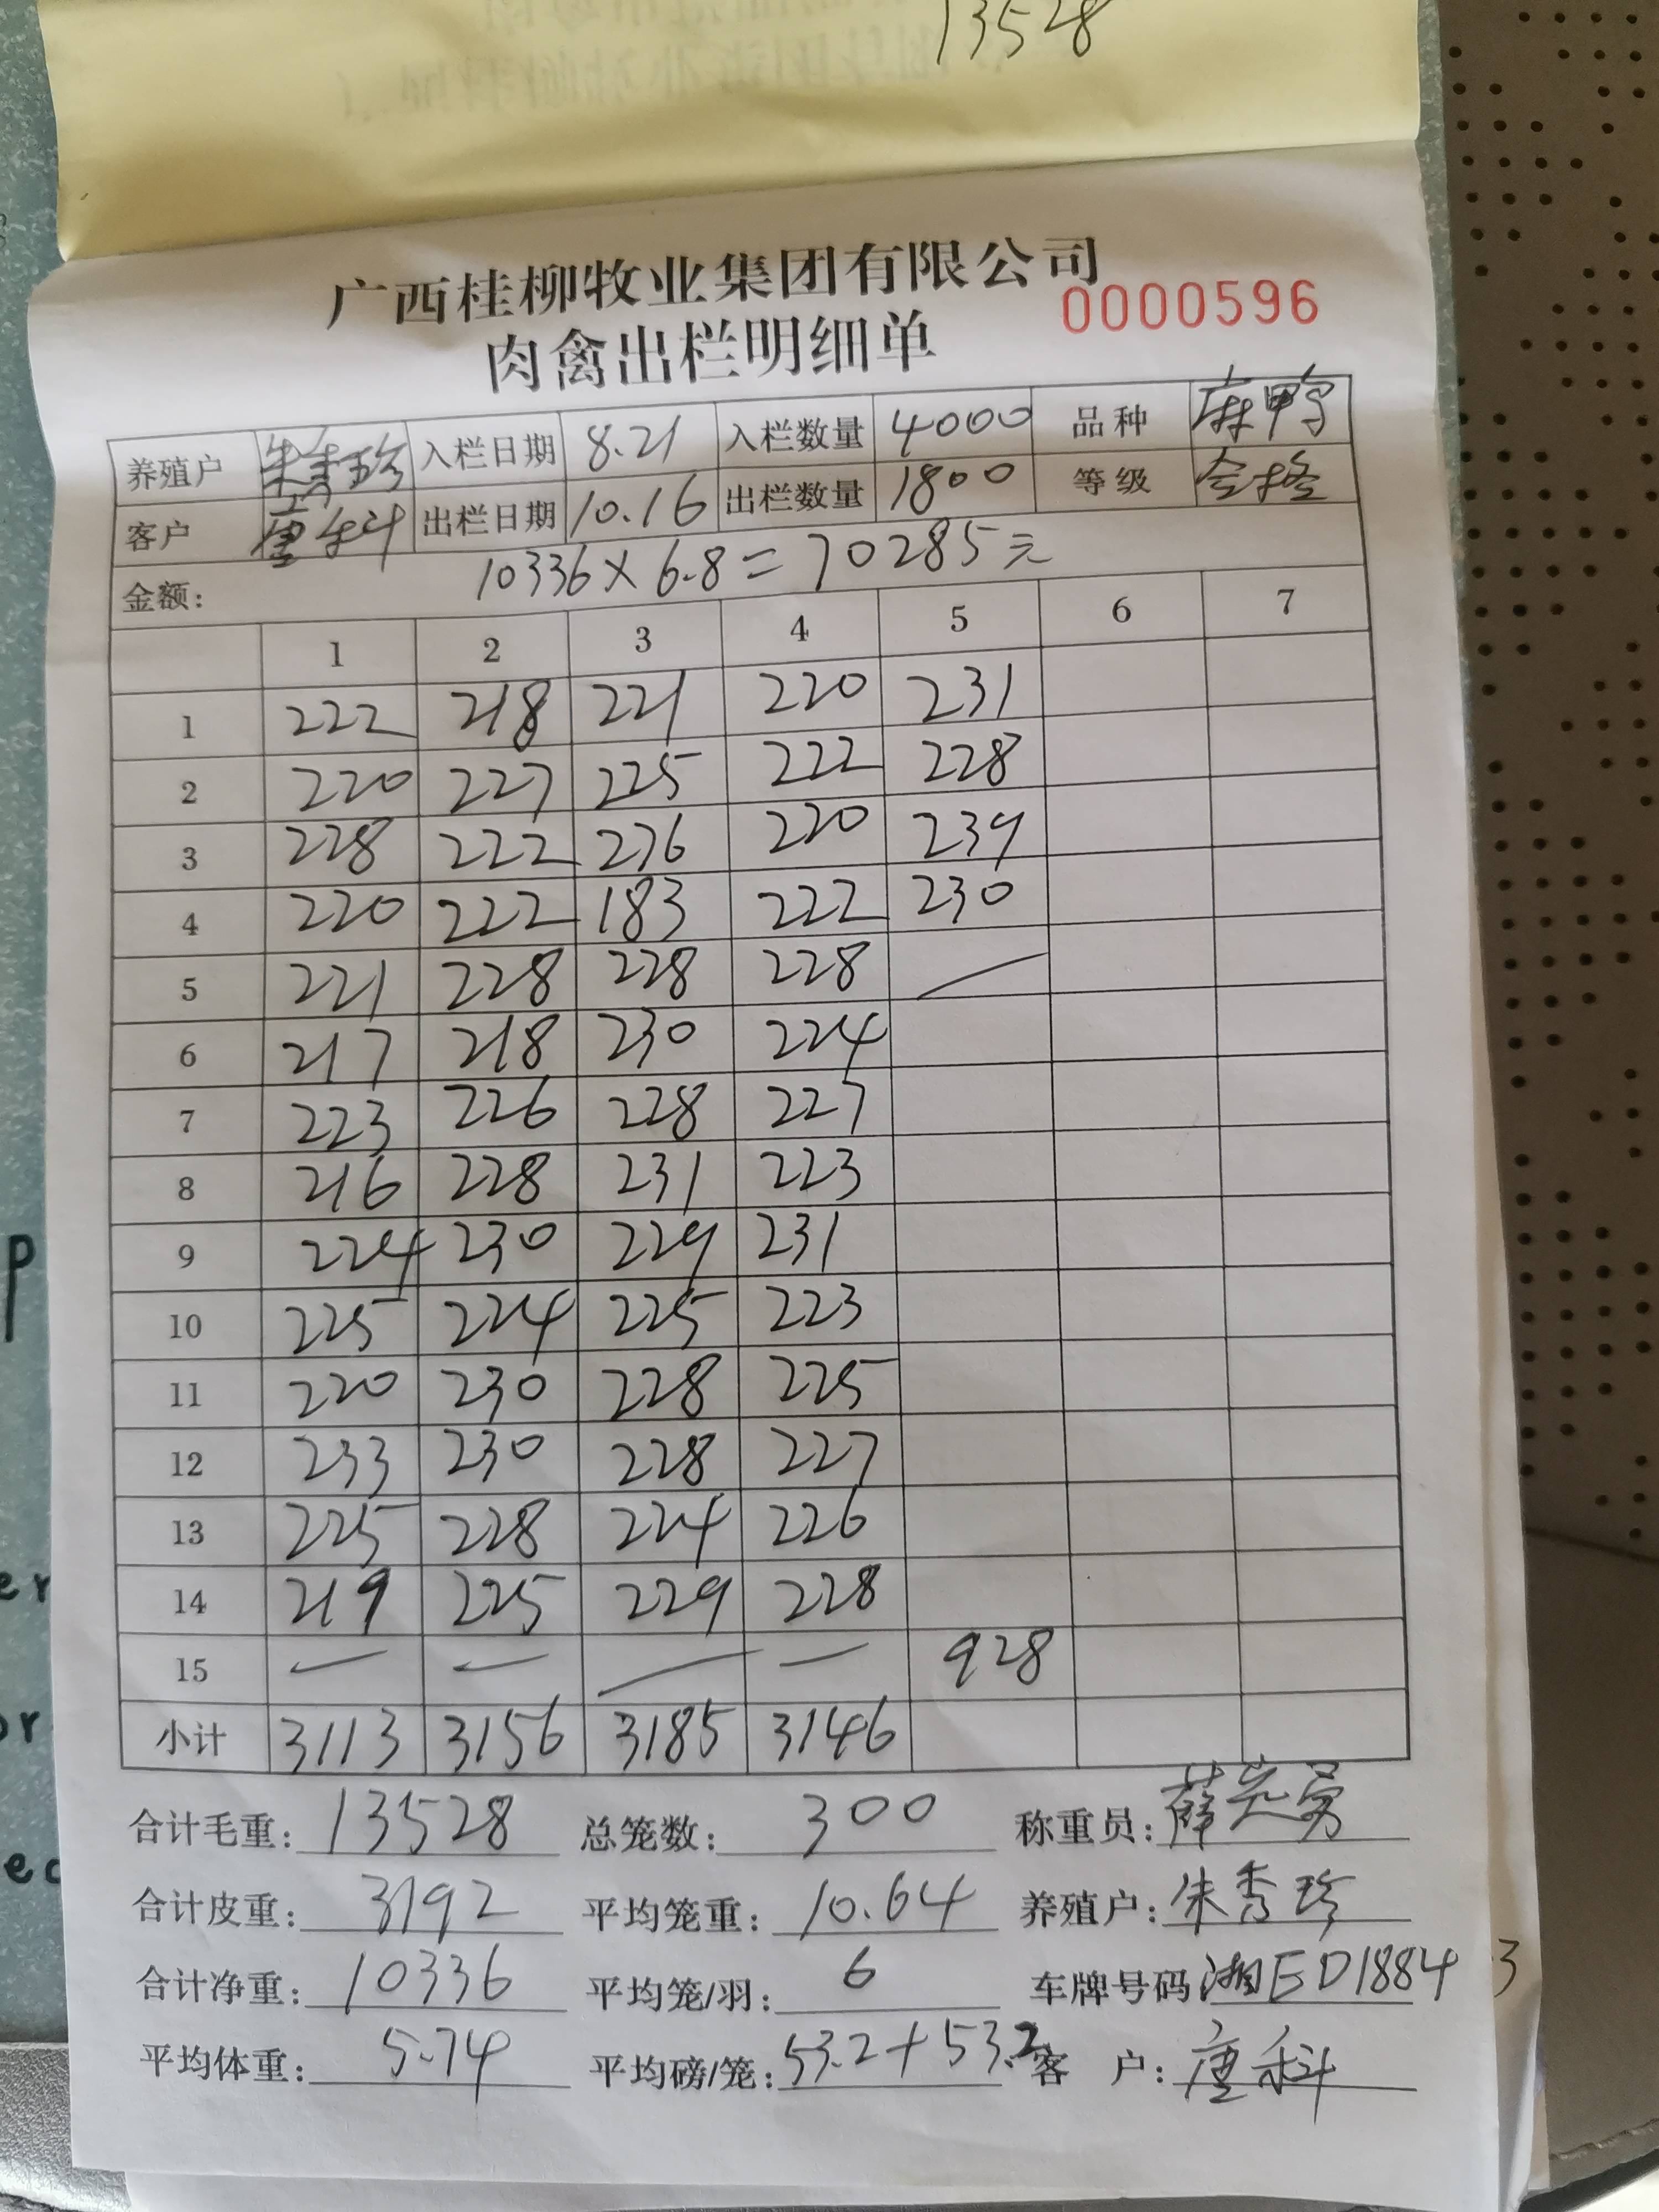 13528
广西桂柳牧业集团有限公司
0000596
肉禽出栏明细单
养殖户 朱秀珍 入栏日期 8.21 入栏数量 4000 品种 麻鸭
客户 唐科 出栏日期 10.16 出栏数量 1800 等级 合格
金额: 10336×6.8=70285元
1 2 3 4 5 6 7
1 222 218 221 220 231
2 220 227 225 222 228
3 228 222 276 220 239
4 220 222 183 222 230
5 221 228 228 228 —
6 217 218 230 224
7 223 226 228 227
8 216 228 231 223
9 224 230 229 231
10 225 224 225 223
11 220 230 228 225
12 233 230 228 227
13 225 228 224 226
14 219 225 229 228
15 — — — — 928
小计 3113 3156 3185 3146
合计毛重: 13528 总笼数: 300 称重员: 薛
合计皮重: 3192 平均笼重: 10.64 养殖户: 朱秀珍
合计净重: 10336 平均笼/羽: 6 车牌号码: 湘ED1884
平均体重: 5.74 平均磅/笼: 53.2+53.2 客 户: 唐科